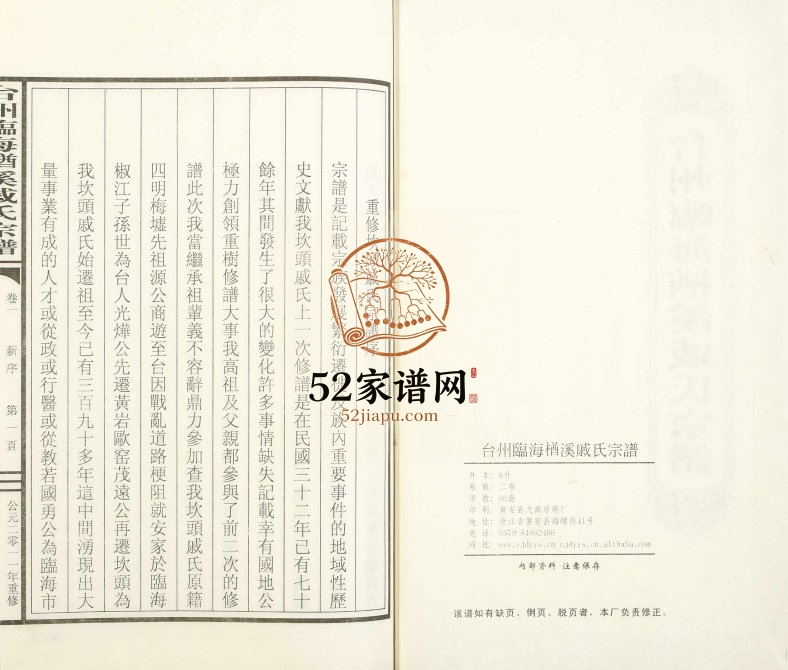 台州臨海楢溪戚氏宗譜
卷一 新序 第一頁
公元二零一一年重修
重修
戚氏
序
宗譜是記載宗族發展繁衍遷
及族內重要事件的地域性歷
史文獻我坎頭戚氏上一次修譜是在民國三十二年已有七十
餘年其間發生了很大的變化許多事情缺失記載幸有國地公
極力創領重樹修譜大事我高祖及父親都參與了前二次的修
譜此次我當繼承祖輩義不容辭鼎力參加查我坎頭戚氏原籍
四明梅墟先祖源公商遊至台因戰亂道路梗阻就安家於臨海
椒江子孫世為台人光燁公先遷黃岩歐窑茂遠公再遷坎頭為
我坎頭戚氏始遷祖至今已有三百九十多年這中間湧現出大
量事業有成的人才或從政或行醫或從教若國勇公為臨海市
52家谱网
52jiapu.com
台州臨海楢溪戚氏宗譜
开 本：8开
卷 数：二卷
印 数：66套
印 刷：磐安县大禹印刷厂
地 址：浙江省磐安县海螺街41号
电 话：0579-84662486
网 址：www.zjdyys.cn zjdyys.cn.alibaba.com
内部资料 注意保存
该谱如有缺页、倒页、脱页者，本厂负责修正。